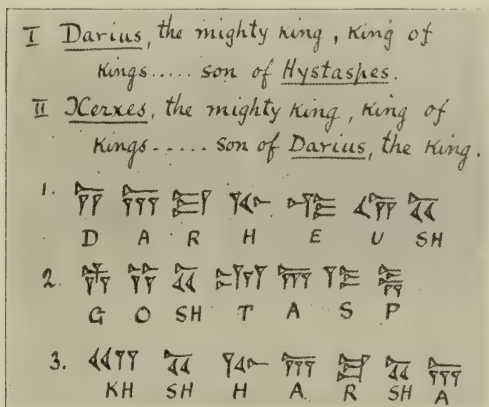 I Darius, the mighty king, King of
Kings..... son of Hystaspes.
II Xerxes, the mighty king, king of
Kings ..... son of Darius, the King.
1. 𐎭 𐎠 𐎼 𐎹 𐎺 𐎢 𐏁
D A R H E U SH
2. 𐎻 𐎡 𐏁 𐎫 𐎠 𐎿 𐎱
G O SH T A S P
3. 𐎧 𐏁 𐎹 𐎠 𐎼 𐏁 𐎠
KH SH H A R SH A